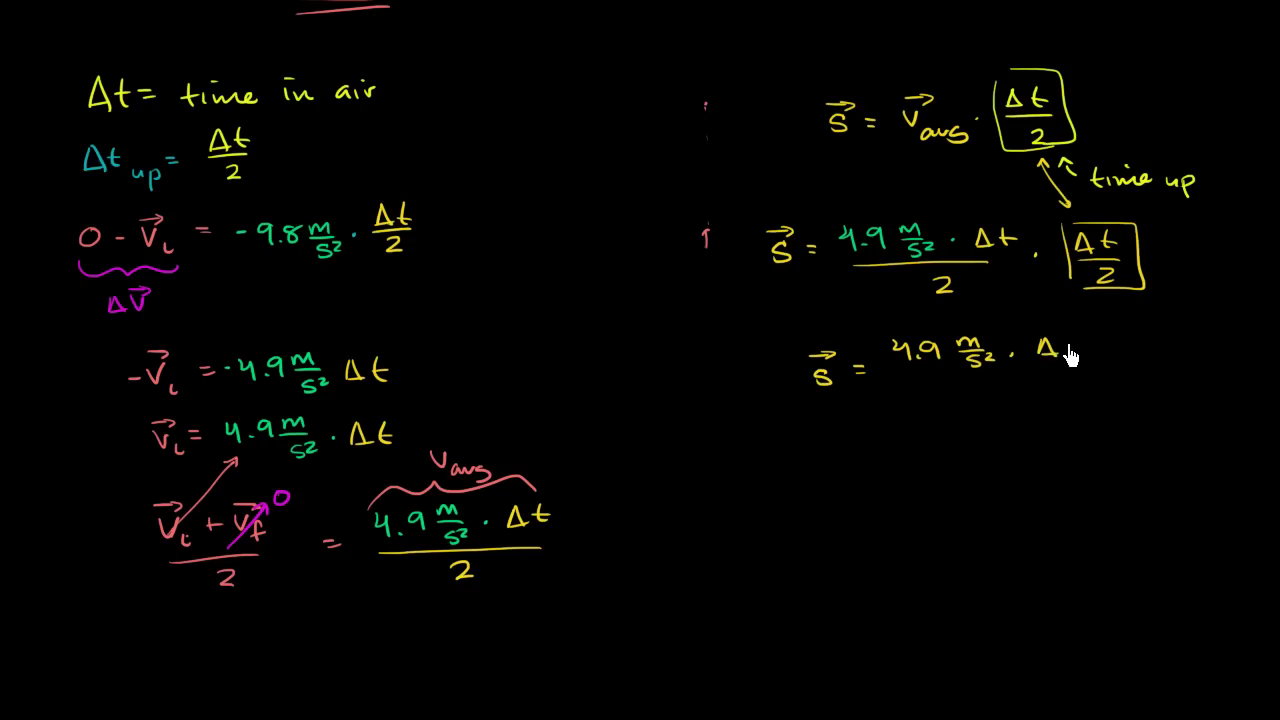 Δt = time in air
Δt up = Δt/2
0 - v⃗ᵢ = -9.8 m/s² · Δt/2
Δv⃗
-v⃗ᵢ = -4.9 m/s² Δt
v⃗ᵢ = 4.9 m/s² · Δt
Vavg
(v⃗ᵢ + v⃗f)/2 = (4.9 m/s² · Δt)/2
0
s⃗ = v⃗avg · Δt/2
time up
s⃗ = (4.9 m/s² · Δt)/2 · Δt/2
s⃗ = 4.9 m/s² · Δ